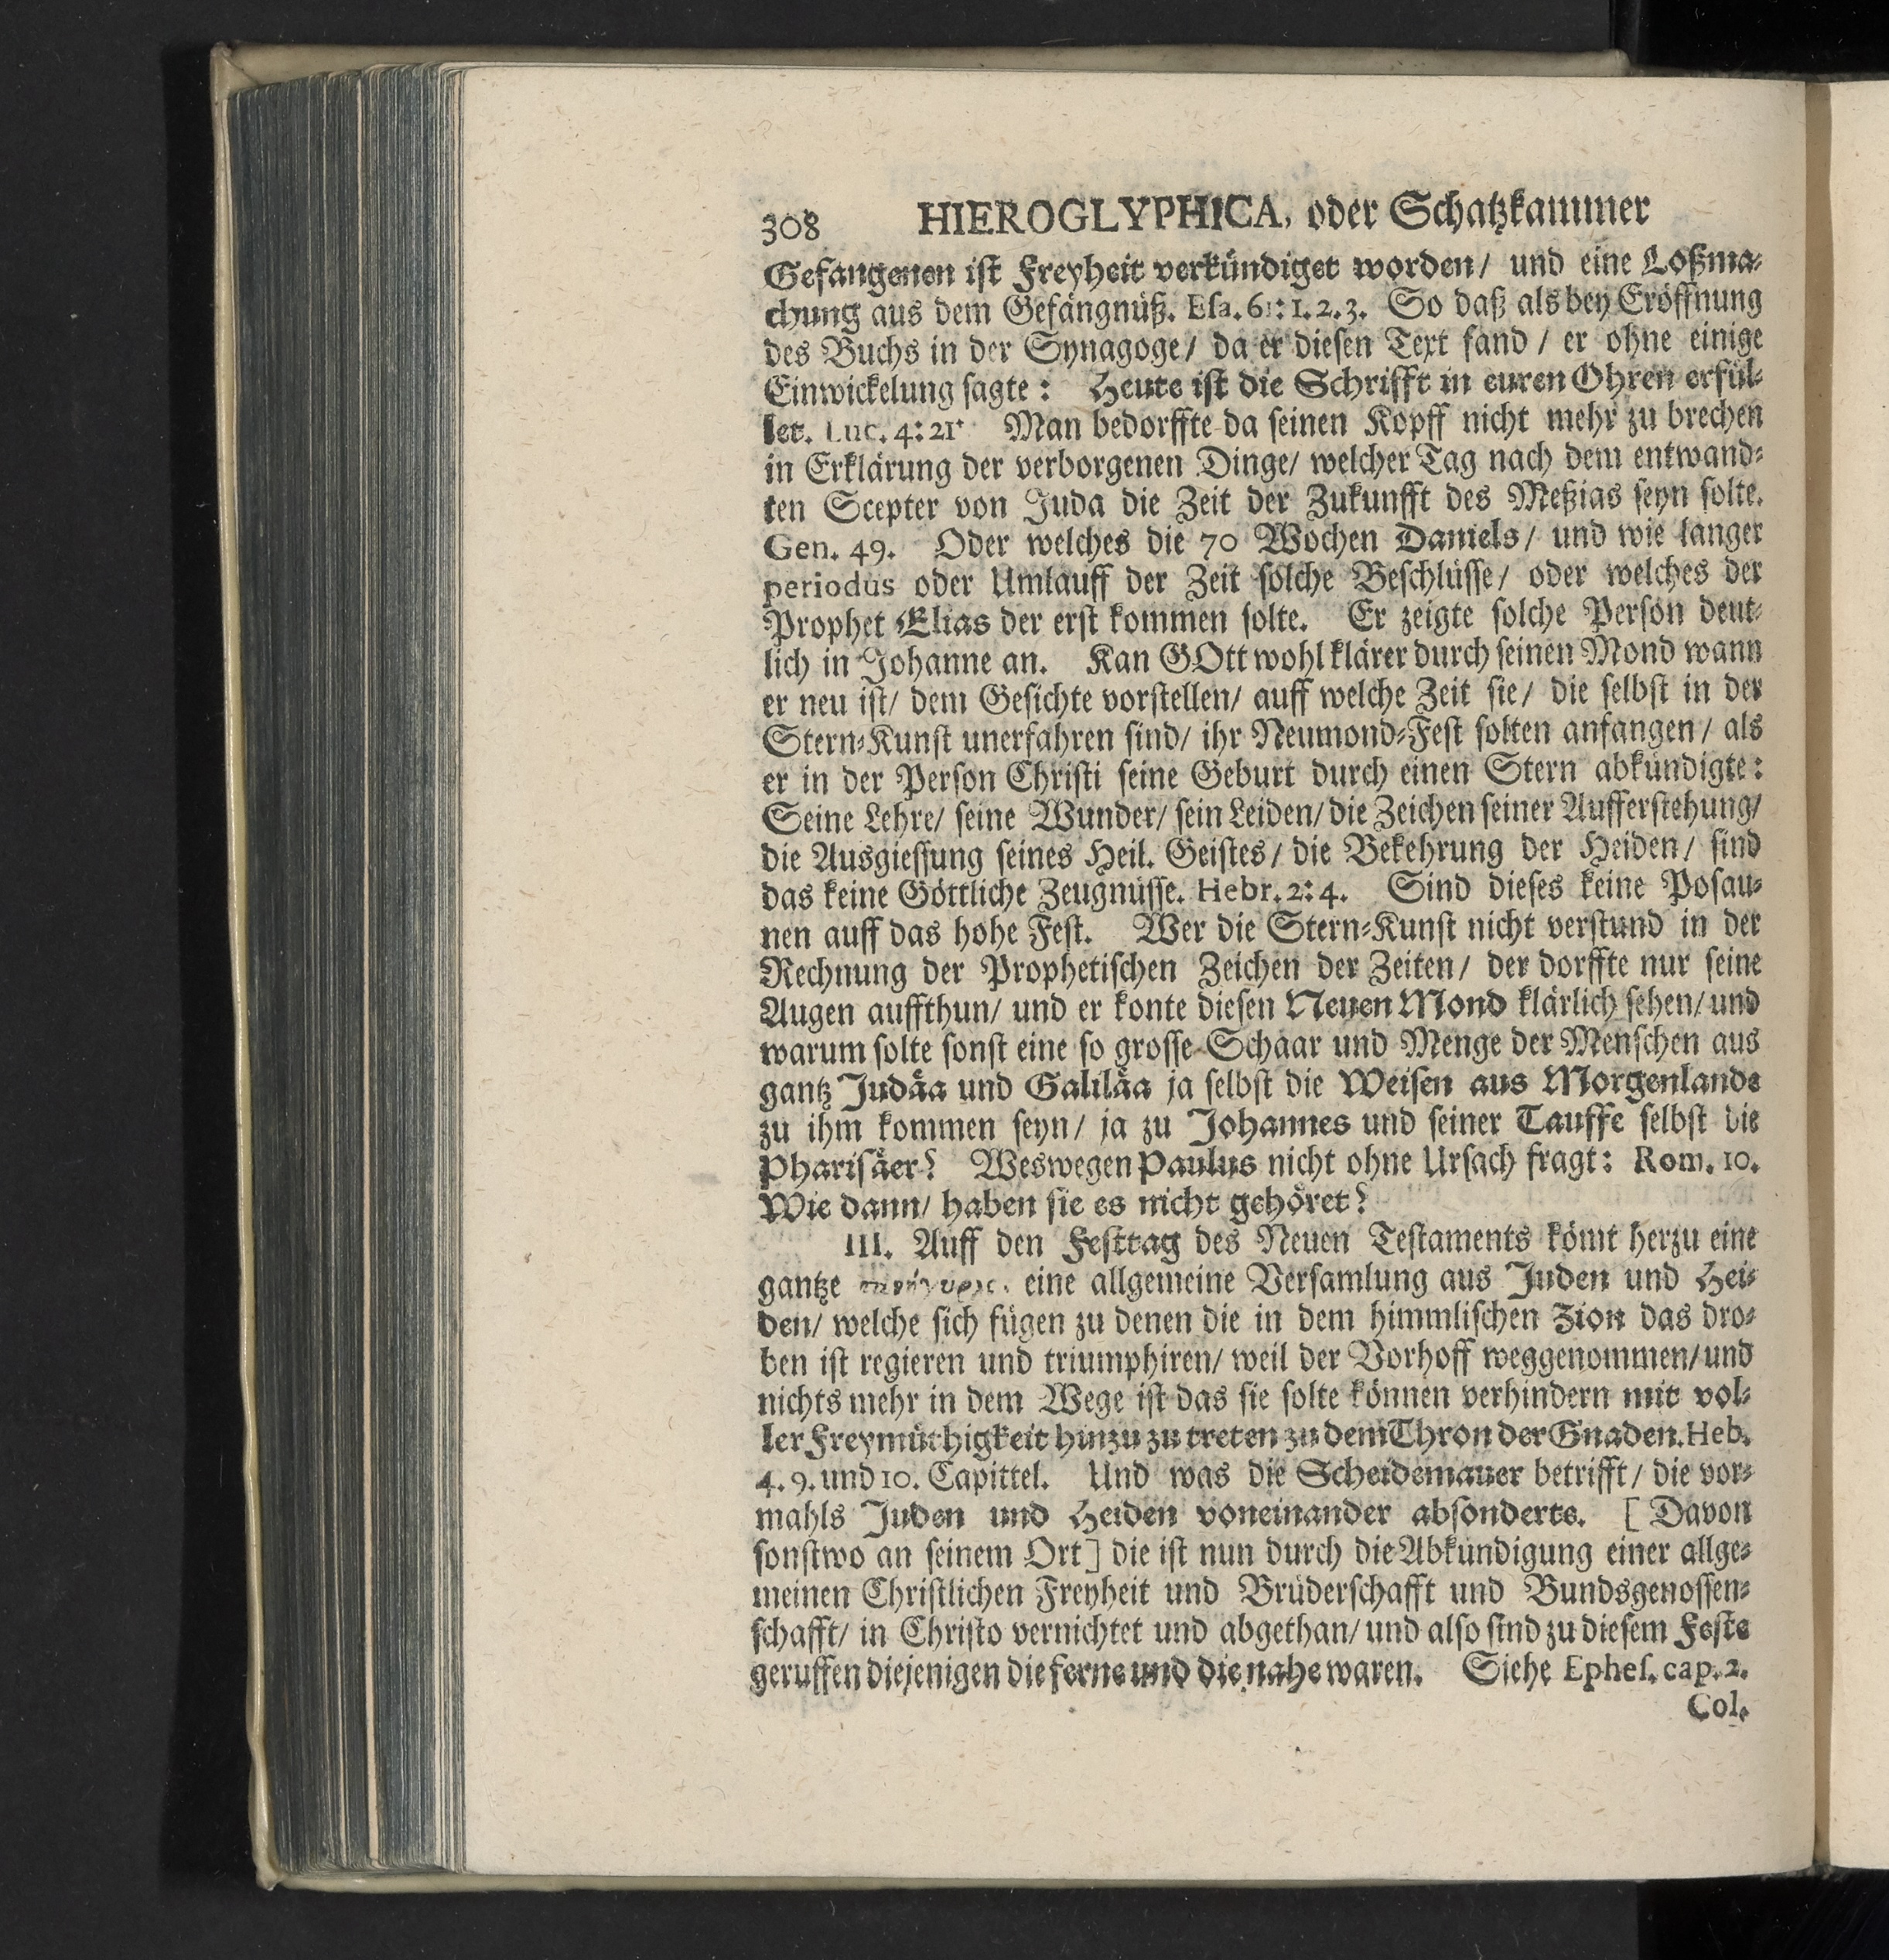 308 HIEROGLYPHICA, oder Schatzkammer
Gefangenen ist Freyheit verkündiget worden/ und eine Loßma-
chung aus dem Gefängnüß. Esa. 61: 1. 2. 3. So daß als bey Eröffnung
des Buchs in der Synagoge/ da er diesen Text fand / er ohne einige
Einwickelung sagte: Heute ist die Schrifft in euren Ohren erfül-
let. Luc. 4: 21. Man bedorffte da seinen Kopff nicht mehr zu brechen
in Erklärung der verborgenen Dinge/ welcher Tag nach dem entwand-
ten Scepter von Juda die Zeit der Zukunfft des Meßias seyn solte.
Gen. 49. Oder welches die 70 Wochen Daniels/ und wie langer
periodus oder Umlauff der Zeit solche Beschlüsse/ oder welches der
Prophet Elias der erst kommen solte. Er zeigte solche Person deut-
lich in Johanne an. Kan GOtt wohl klärer durch seinen Mond wann
er neu ist/ dem Gesichte vorstellen/ auff welche Zeit sie/ die selbst in der
Stern-Kunst unerfahren sind/ ihr Neumond-Fest solten anfangen/ als
er in der Person Christi seine Geburt durch einen Stern abkündigte:
Seine Lehre/ seine Wunder/ sein Leiden/ die Zeichen seiner Aufferstehung/
die Ausgiessung seines Heil. Geistes/ die Bekehrung der Heiden/ sind
das keine Göttliche Zeugnüsse. Hebr. 2: 4. Sind dieses keine Posau-
nen auff das hohe Fest. Wer die Stern-Kunst nicht verstund in der
Rechnung der Prophetischen Zeichen der Zeiten/ der dorffte nur seine
Augen auffthun/ und er konte diesen Neuen Mond klärlich sehen/ und
warum solte sonst eine so grosse Schaar und Menge der Menschen aus
gantz Judäa und Galiläa ja selbst die Weisen aus Morgenlande
zu ihm kommen seyn/ ja zu Johannes und seiner Tauffe selbst die
Pharisäer? Weswegen Paulus nicht ohne Ursach fragt: Rom. 10.
Wie dann/ haben sie es nicht gehöret?
III. Auff den Festtag des Neuen Testaments kömt herzu eine
gantze eine allgemeine Versamlung aus Juden und Hei-
den/ welche sich fügen zu denen die in dem himmlischen Zion das dro-
ben ist regieren und triumphiren/ weil der Vorhoff weggenommen/ und
nichts mehr in dem Wege ist das sie solte können verhindern mit vol-
ler Freymüthigkeit hinzu zu treten zu dem Thron der Gnaden. Heb.
4. 9. und 10. Capittel. Und was die Scheidemauer betrifft/ die vor-
mahls Juden und Heiden voneinander absonderte. [ Davon
sonstwo an seinem Ort] die ist nun durch die Abkündigung einer allge-
meinen Christlichen Freyheit und Brüderschafft und Bundsgenossen-
schafft/ in Christo vernichtet und abgethan/ und also sind zu diesem Feste
geruffen diejenigen die ferne und die nahe waren. Siehe Ephes. cap. 2.
Col.